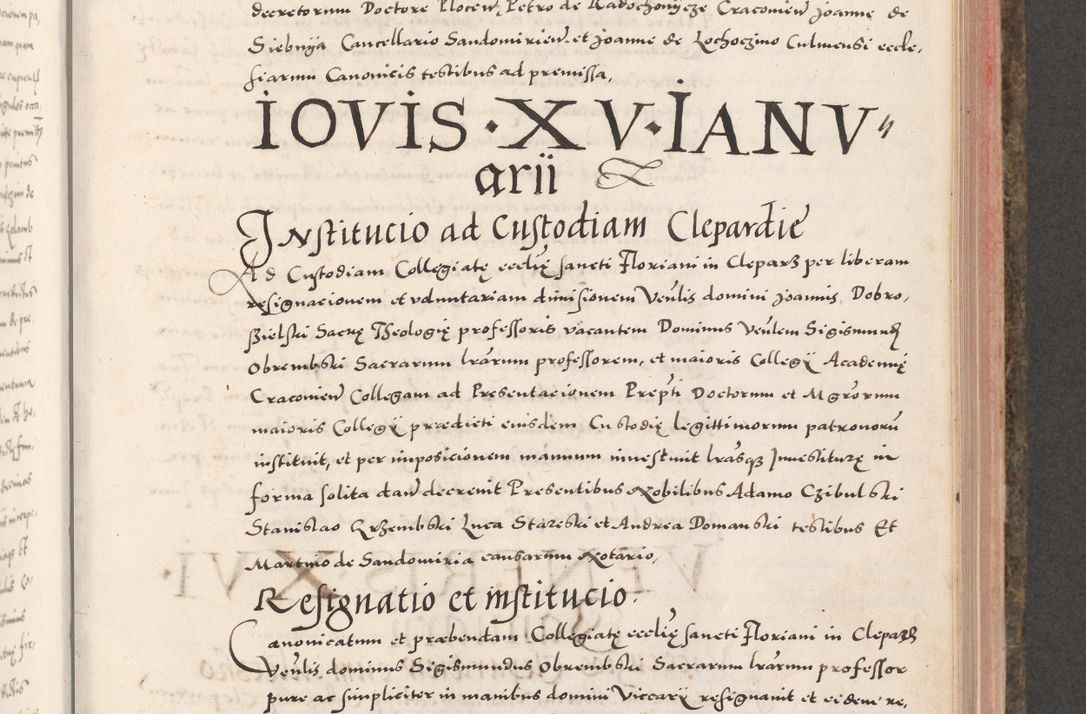 decretorum Doctore Plocen̄, Petro de Radochonycze Cracovien̄ Joanne de
Siebnya Cancellario Sandomirien̄ et Joanne de Lochoczino Culmensi eccle,
siarum Canonicis testibus ad premissa,
IOVIS · XV · IANV〃
arii
Institucio ad Custodiam Clepardie
Ad Custodiam Collegiatę ecclię sancti Floriani in Cleparz per liberam
resignacionem et voluntariam dimisionem Venlis domini Joannis Dobro,
szielski Sacrę Theologię professoris vacantem Dominus Venlem Sigismund
Obrembski Sacrarum lrarum professorem, et maioris Collegÿ Academię
Cracovien̄ Collegam ad Presentacionem Prepti Doctorum et Mgrorum
maioris Collegÿ prædicti eiusdem Custodię legittimorum patronorū
instituit, et per imposicionem manuum investiuit lrasq̨ Investiturę in
forma solita dań decreuit Presentibus Nobilibus Adamo Czibulski
Stanislao Krzembski Luca Stareski et Andrea Domanski testibus Et
Martino de Sandomiria causarum Notario,
Resignatio et institucio.
Canonicatum et præbendam Collegiatę ecclię sancti Floriani in Cleparz
Venlis dominus Sigismundus Obrembski Sacrarum lrarum professor
pure ac simpliciter in manibus domini Viccarÿ resignauit et eidem re,